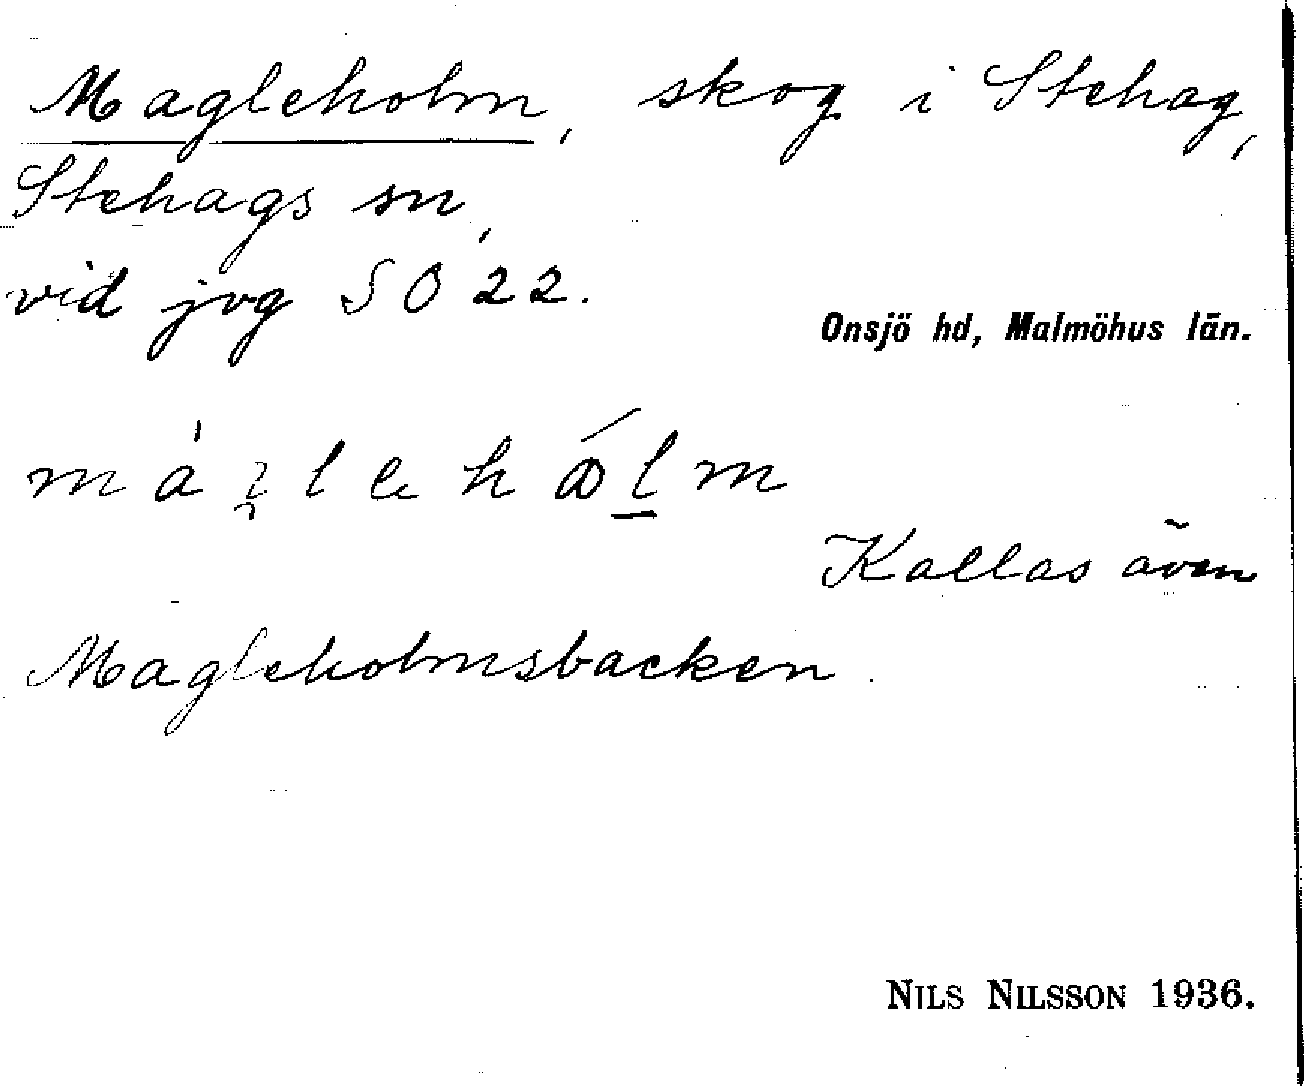 Magleholm, skog i Stehag,
Stehags sn,
vid jvg SO 22.
Onsjö hd, Malmöhus län.
Kallas även
Magleholmsbacken.
NILS NILSSON 1936.